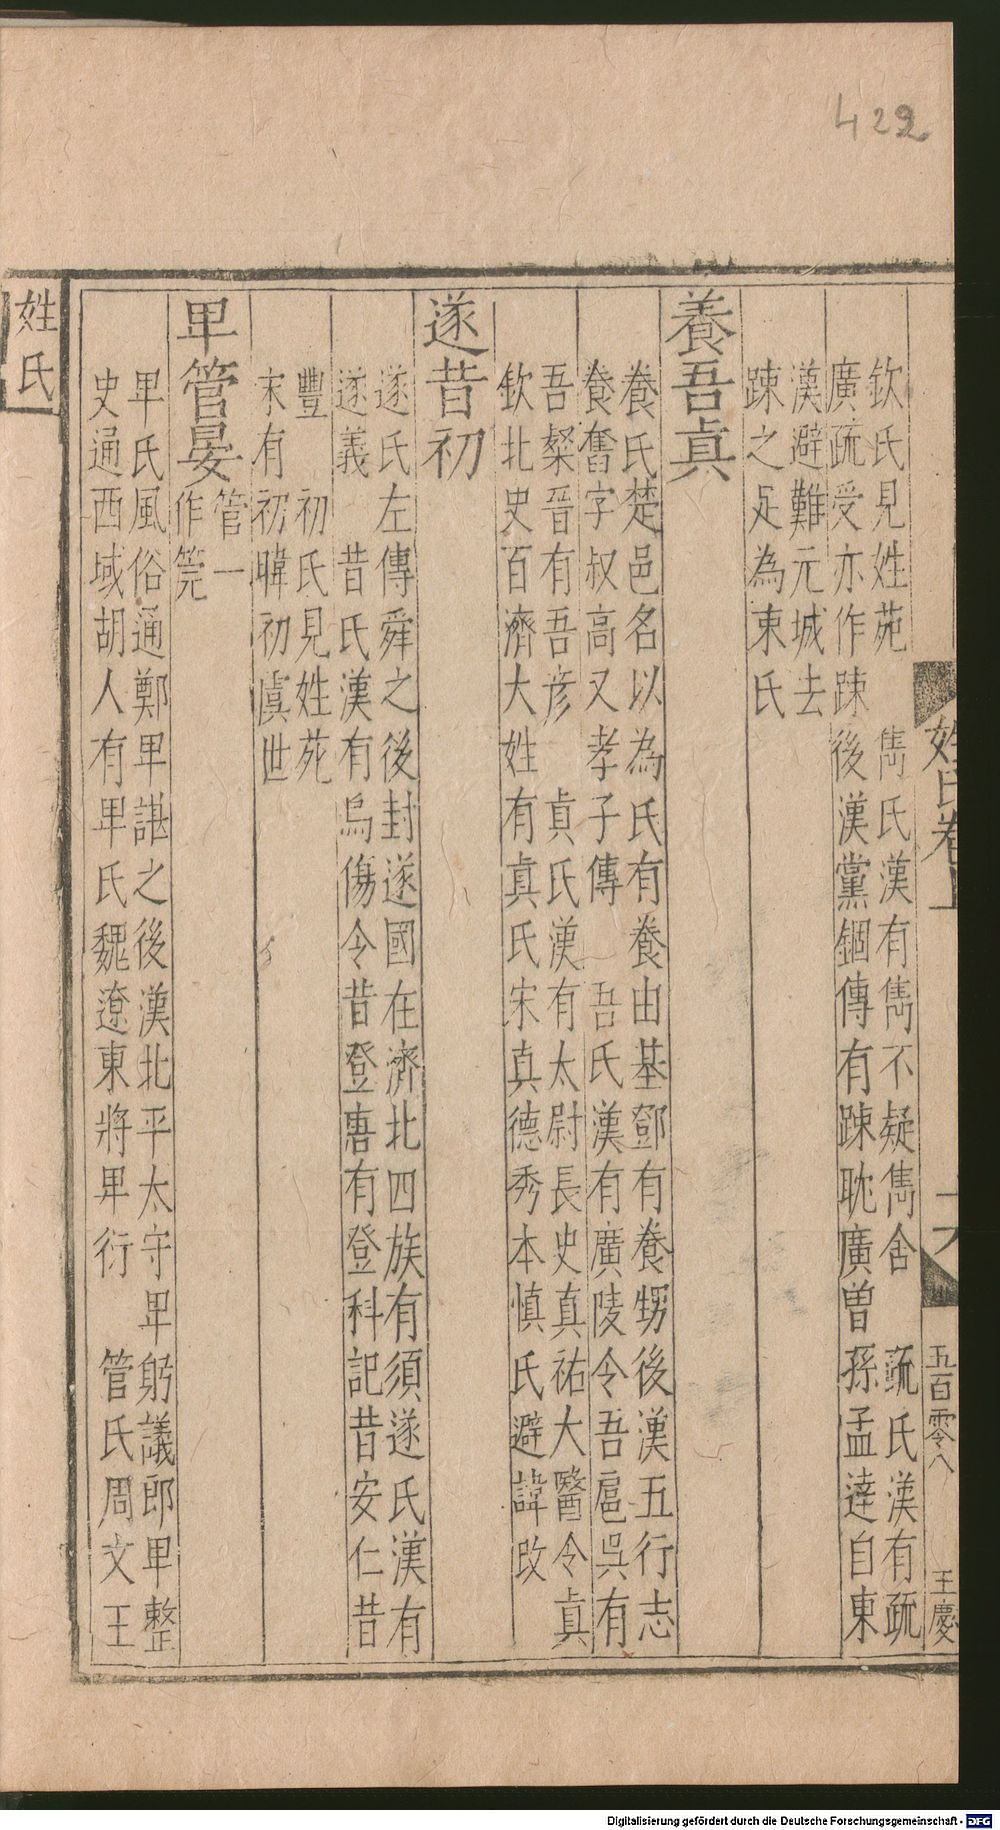 422
姓氏卷上
十六
五百零八
王慶
欽氏見姓苑　雋氏漢有雋不疑雋舍　疏氏漢有疏
廣疏受亦作踈後漢黨錮傳有踈耽廣曾孫孟逹自東
漢避難元城去
踈之足為束氏
養吾真
養氏楚邑名以為氏有養由基鄧有養甥後漢五行志
養奮字叔高又孝子傳　吾氏漢有廣陵令吾扈吳有
吾粲晉有吾彥　真氏漢有太尉長史真祐大醫令真
欽北史百濟大姓有真氏宋真德秀本慎氏避諱改
遂昔初
遂氏左傳舜之後封遂國在濟北四族有須遂氏漢有
遂義　昔氏漢有烏傷令昔登唐有登科記昔安仁昔
豐　初氏見姓苑
宋有初暐初虞世
卑管晏
管一
作筦
卑氏風俗通鄭卑諶之後漢北平太守卑躬議郎卑整
史通西域胡人有卑氏魏遼東將卑衍　管氏周文王
姓氏
Digitalisierung gefördert durch die Deutsche Forschungsgemeinschaft - DFG